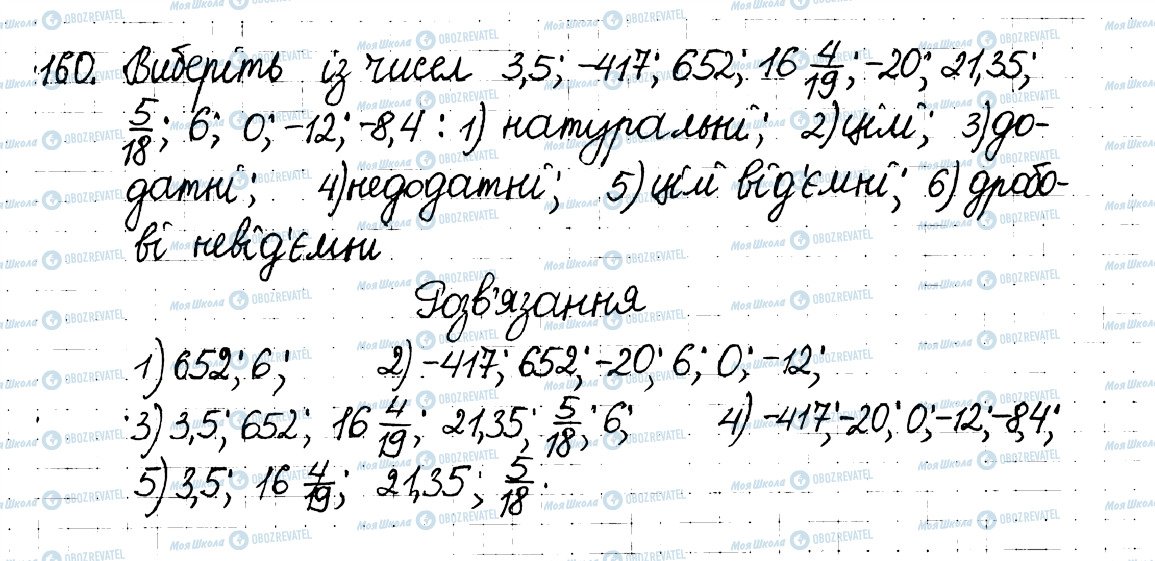 160. Виберіть із чисел 3,5; -417; 652; 16 4/19; -20; 21,35;
5/18; 6; 0; -12; -8,4 : 1) натуральні; 2) цілі; 3) до-
датні; 4) недодатні; 5) цілі від'ємні; 6) дробо-
ві невід'ємни
Розв'язання
1) 652; 6; 2) -417; 652; -20; 6; 0; -12;
3) 3,5; 652; 16 4/19; 21,35; 5/18; 6; 4) -417; -20; 0; -12; -8,4;
5) 3,5; 16 4/19; 21,35; 5/18.